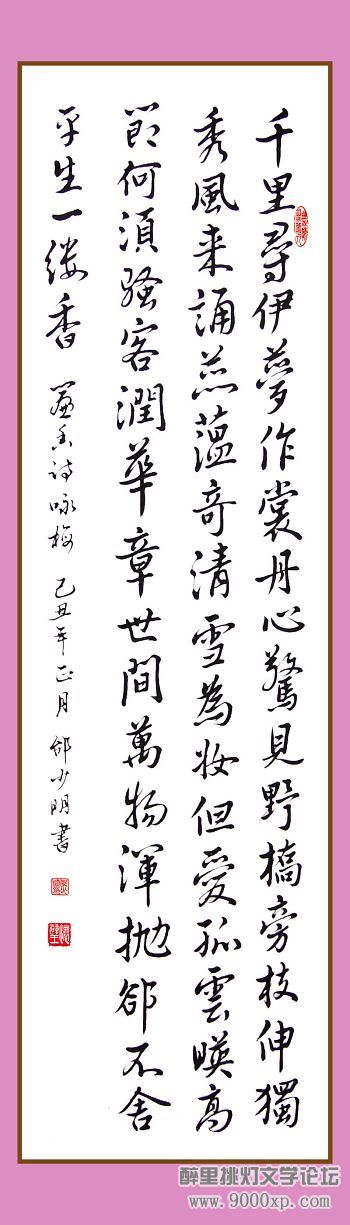 千里尋伊夢作裳丹心驚見野橋旁枝伸獨
秀風来誦蕊蕴奇清雪為妝但愛孤雲暎高
節何須騷客潤華章世間萬物渾抛卻不舍
平生一缕香
詩咏梅 己丑年正月 邰少明書
醉里挑灯文学论坛
www.9000xp.com